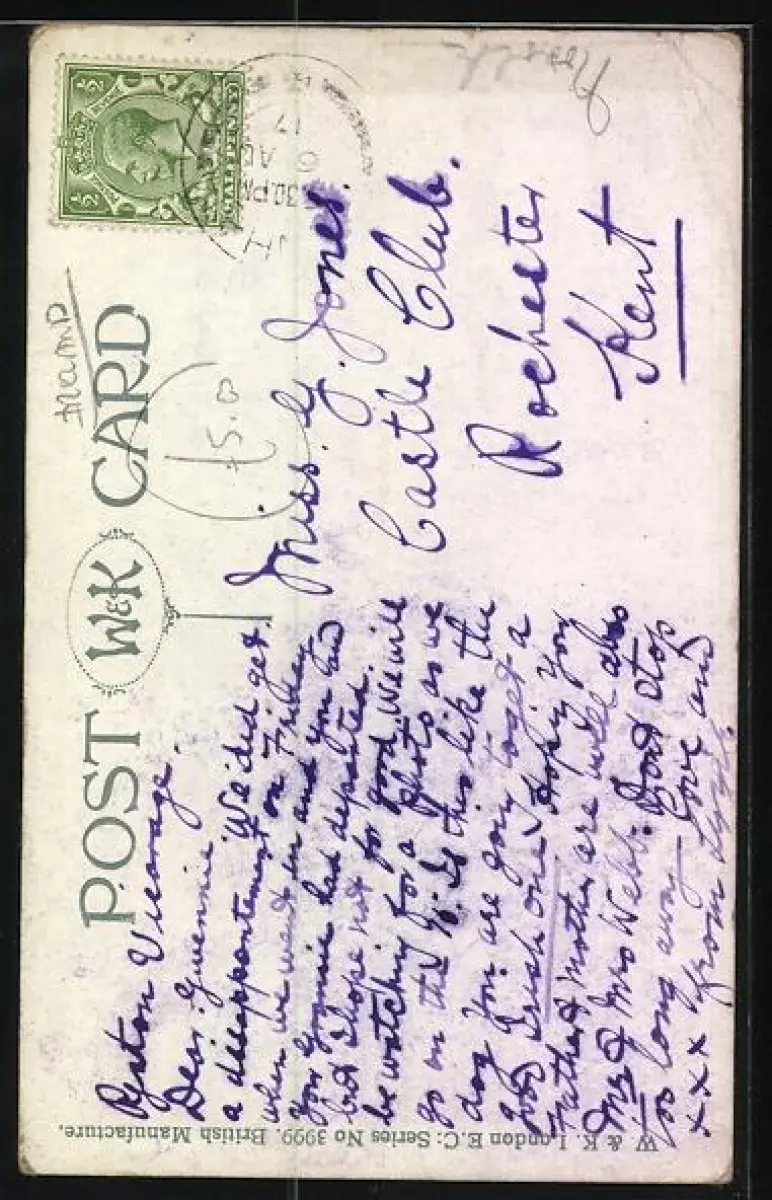 POST W&K CARD
stamp
£5.0
Ryston Vicarage.
Dear Gwennie We did get
a disappointment on Friday
when we went in and you and
your Grannie had departed.
but I hope not for good. We will
be watching for a Photo as we
go on the Is this like the
dog you are going to get a
good Irish one I hoping you
Father & Mother are well also
Mr & Mrs Webb. Dont stop
too long away Love and
xxx from
Miss. G. Jones.
Castle Club.
Rochester
Kent
30 PM
AU
17
W & K. London E.C: Series No 3999. British Manufacture.